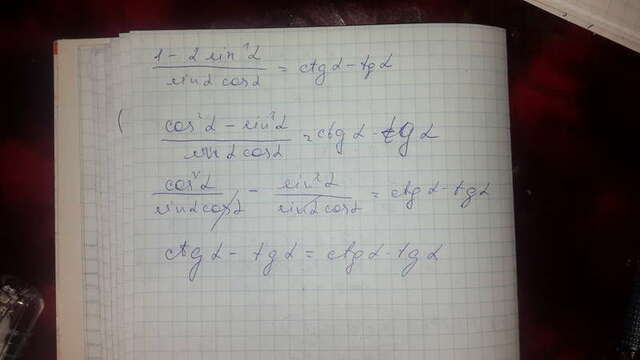 1 - 2 sin²α / sinα cosα = ctgα - tgα
cos²α - sin²α / sinα cosα = ctgα - tgα
cos²α / sinα cosα - sin²α / sinα cosα = ctgα - tgα
ctgα - tgα = ctgα - tgα